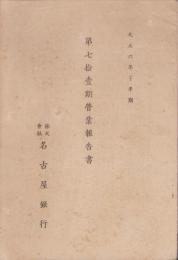 大正六年下半期
第七拾壹期營業報告書
株式會社 名古屋銀行